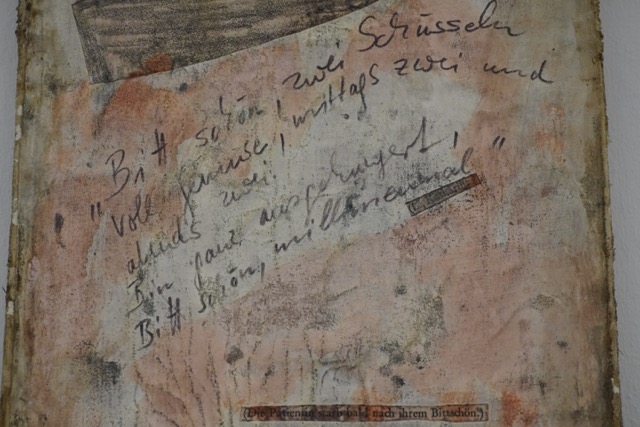 "Bitt schön, zwei Schüsseln
voll Gemüse, mittags zwei und
abends zwei.
Bin ganz ausgehungert,
Bitt schön, millionenmal"
(Die Patientin starb bald nach ihrem Bittschön.)